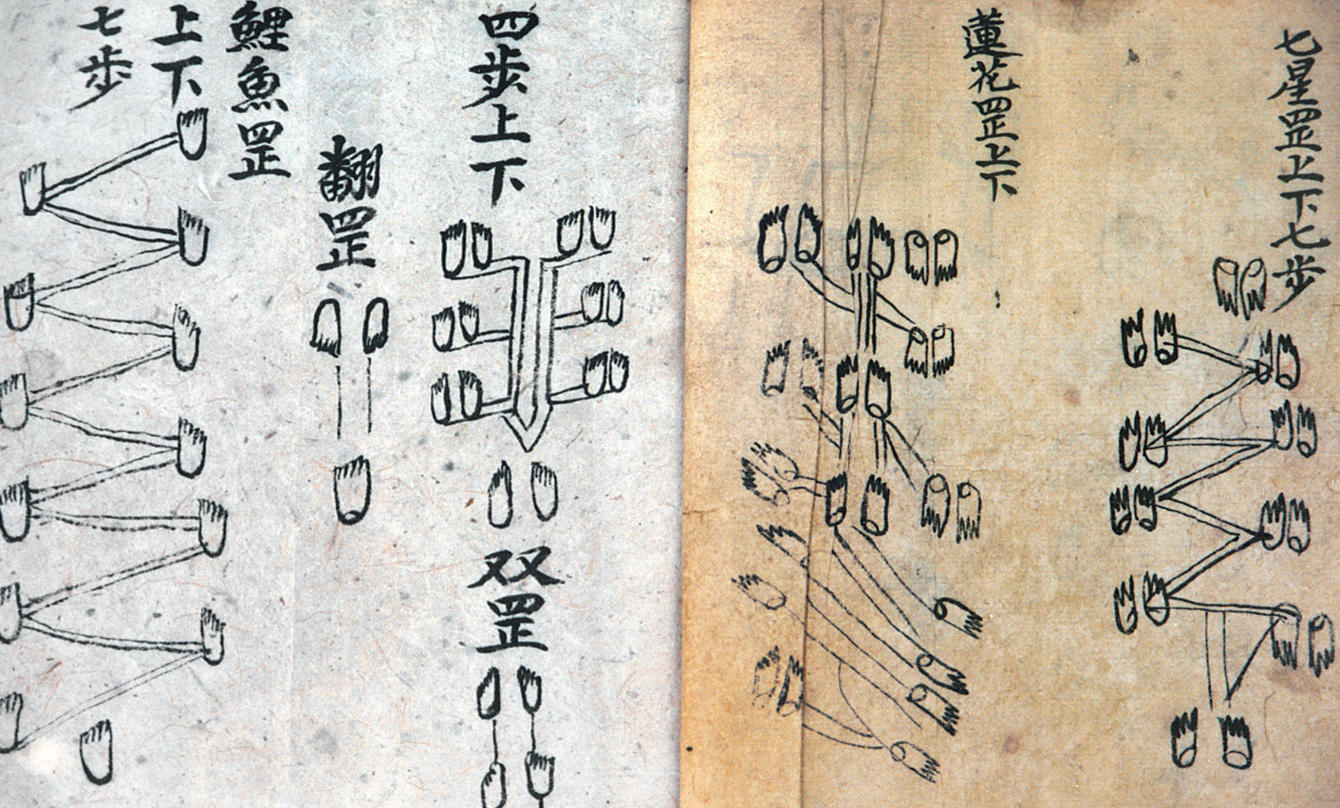 七星罡上下七步
蓮花罡上下
四步上下
双罡
翻罡
鯉魚罡
上下
七步